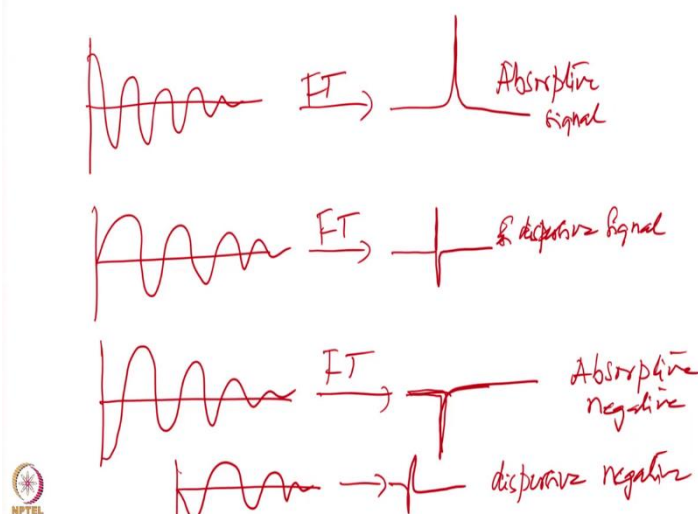 FT
Absorptive
signal
FT
dispersive signal
FT
Absorptive
negative
dispersive negative
NPTEL